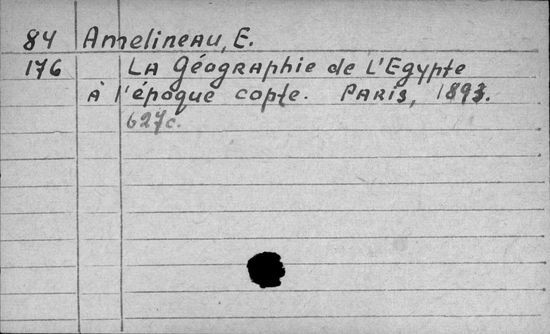 84 Amelineau, E.
176 La Géographie de L'Egypte
à l'époque copte. Paris, 1893.
627c.